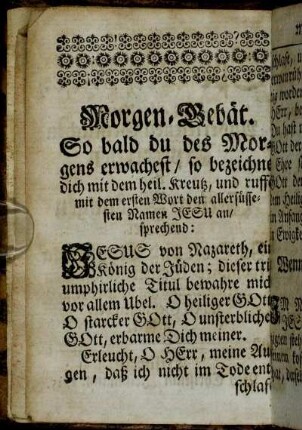 Morgen-Gebät.
So bald du des Mor-
gens erwachest / so bezeichne
dich mit dem heil. Kreutz, und ruff
mit dem ersten Wort den allersüsse-
sten Namen JESU an/
sprechend:
JESUS von Nazareth, ein
König der Jüden; dieser tri
umphirliche Titul bewahre mich
vor allem Ubel. O heiliger GOtt
O starcker GOtt, O unsterbliche
GOtt, erbarme Dich meiner.
Erleucht, O HErr, meine Au
gen, daß ich nicht im Tode ent
schlaf